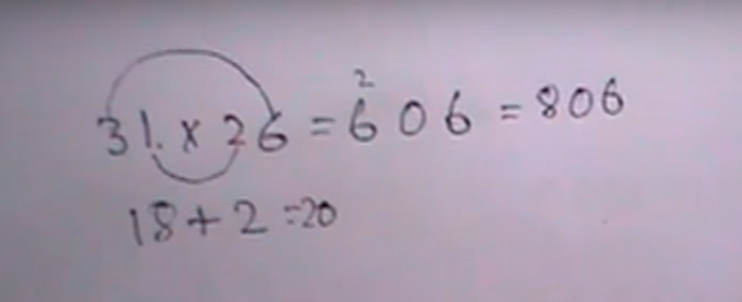 31. x 26 = 6²06 = 806
18 + 2 = 20